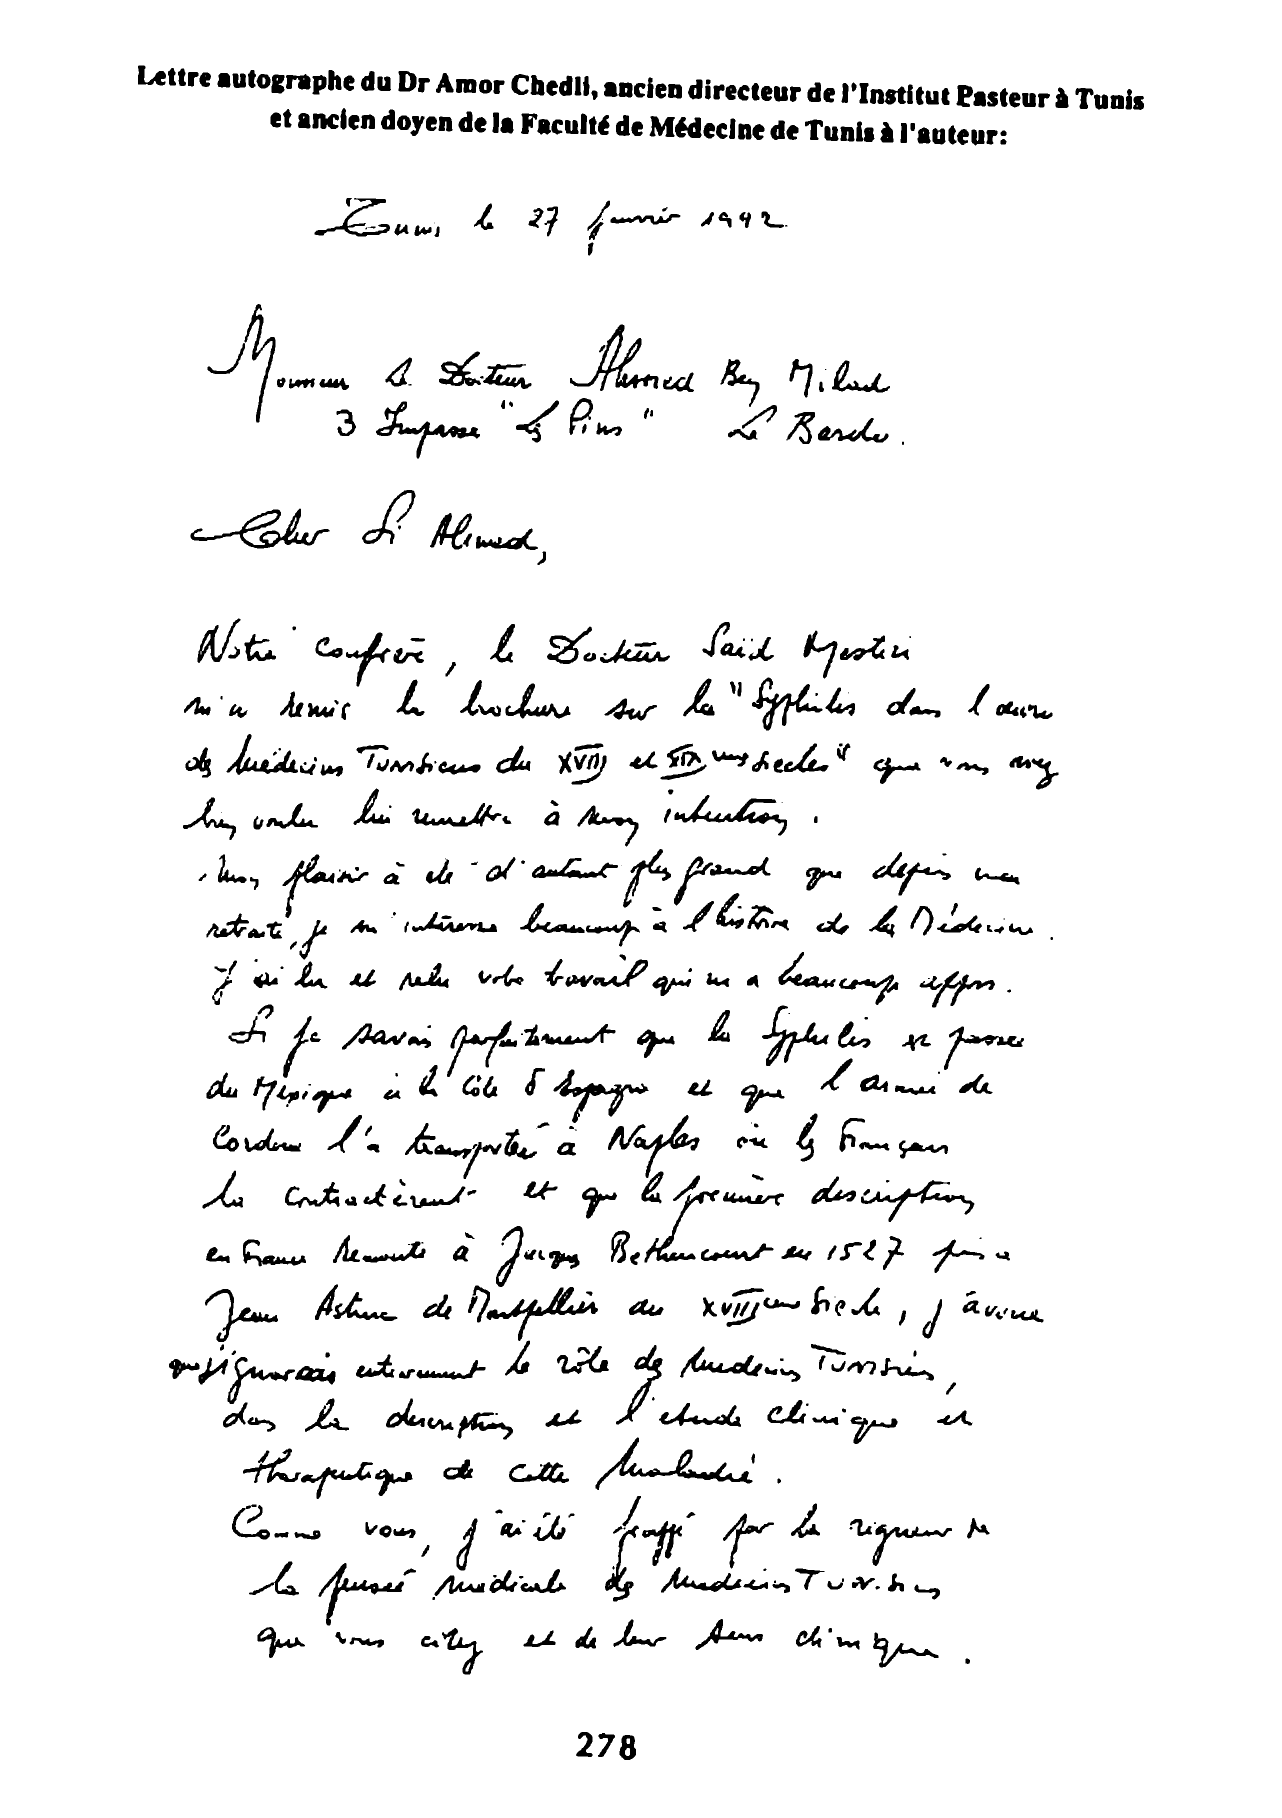 Lettre autographe du Dr Amor Chedli, ancien directeur de l'Institut Pasteur à Tunis
et ancien doyen de la Faculté de Médecine de Tunis à l'auteur:
Tunis le 27 janvier 1992
Monsieur le Docteur Ahmed Bey Milad
3 Impasse "Les Pins" Le Bardo.
Cher Si Ahmed,
Notre confrère, le Docteur Saïd Mestiri
m'a remis la brochure sur la "Syphilis dans l'œuvre
des Médecins Tunisiens du XVII et XIX èmes siècles" que vous avez
bien voulu lui remettre à mon intention.
Mon plaisir à été d'autant plus grand que depuis ma
retraite, je m'intéresse beaucoup à l'histoire de la Médecine.
J'ai lu et relu votre travail qui m'a beaucoup appris.
Si je savais parfaitement que la Syphilis est passée
du Mexique à la Côte d'Espagne et que l'armée de
Cordoue l'a transportée à Naples où les Français
la contractèrent et que la première description
en France remonte à Jacques Bethencourt en 1527 puis a
Jean Astruc de Montpellier au XVIII ème Siècle, j'avoue
que j'ignorais entièrement le rôle des Médecins Tunisiens,
dans la description et l'étude clinique et
thérapeutique de cette Maladie.
Comme vous, j'ai été frappé par la rigueur de
la pensée médicale des Médecins Tunisiens
que vous citez et de leur sens clinique.
278